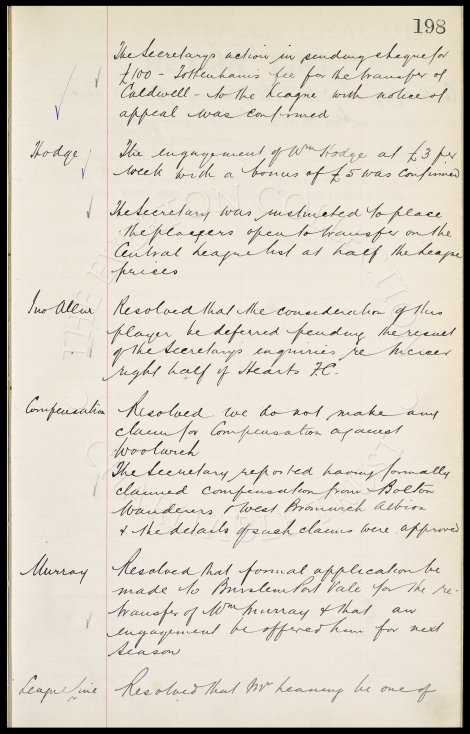 198
The Secretarys action in sending cheque for
£100 - Tottenhams fee for the transfer of
Caldwell - to the League with notice of
appeal was confirmed
Hodge The engagement of Wm Hodge at £3 per
week with a bonus of £5 was confirmed
The Secretary was instructed to place
the players open to transfer on the
Central League list at half the League
prices
Jno Allan Resolved that the consideration of this
player be deferred pending the result
of the Secretarys enquiries re Mercer
right half of Hearts F.C.
Compensation Resolved we do not make any
claim for Compensation against
Woolwich
The Secretary reported having formally
claimed compensation from Bolton
Wanderers & West Bromwich Albion
& the details of such claims were approved
Murray Resolved that formal application be
made to Burslem Port Vale for the re-
transfer of Wm Murray & that an
engagement be offered him for next
Season
League Resolved that Mr be one of